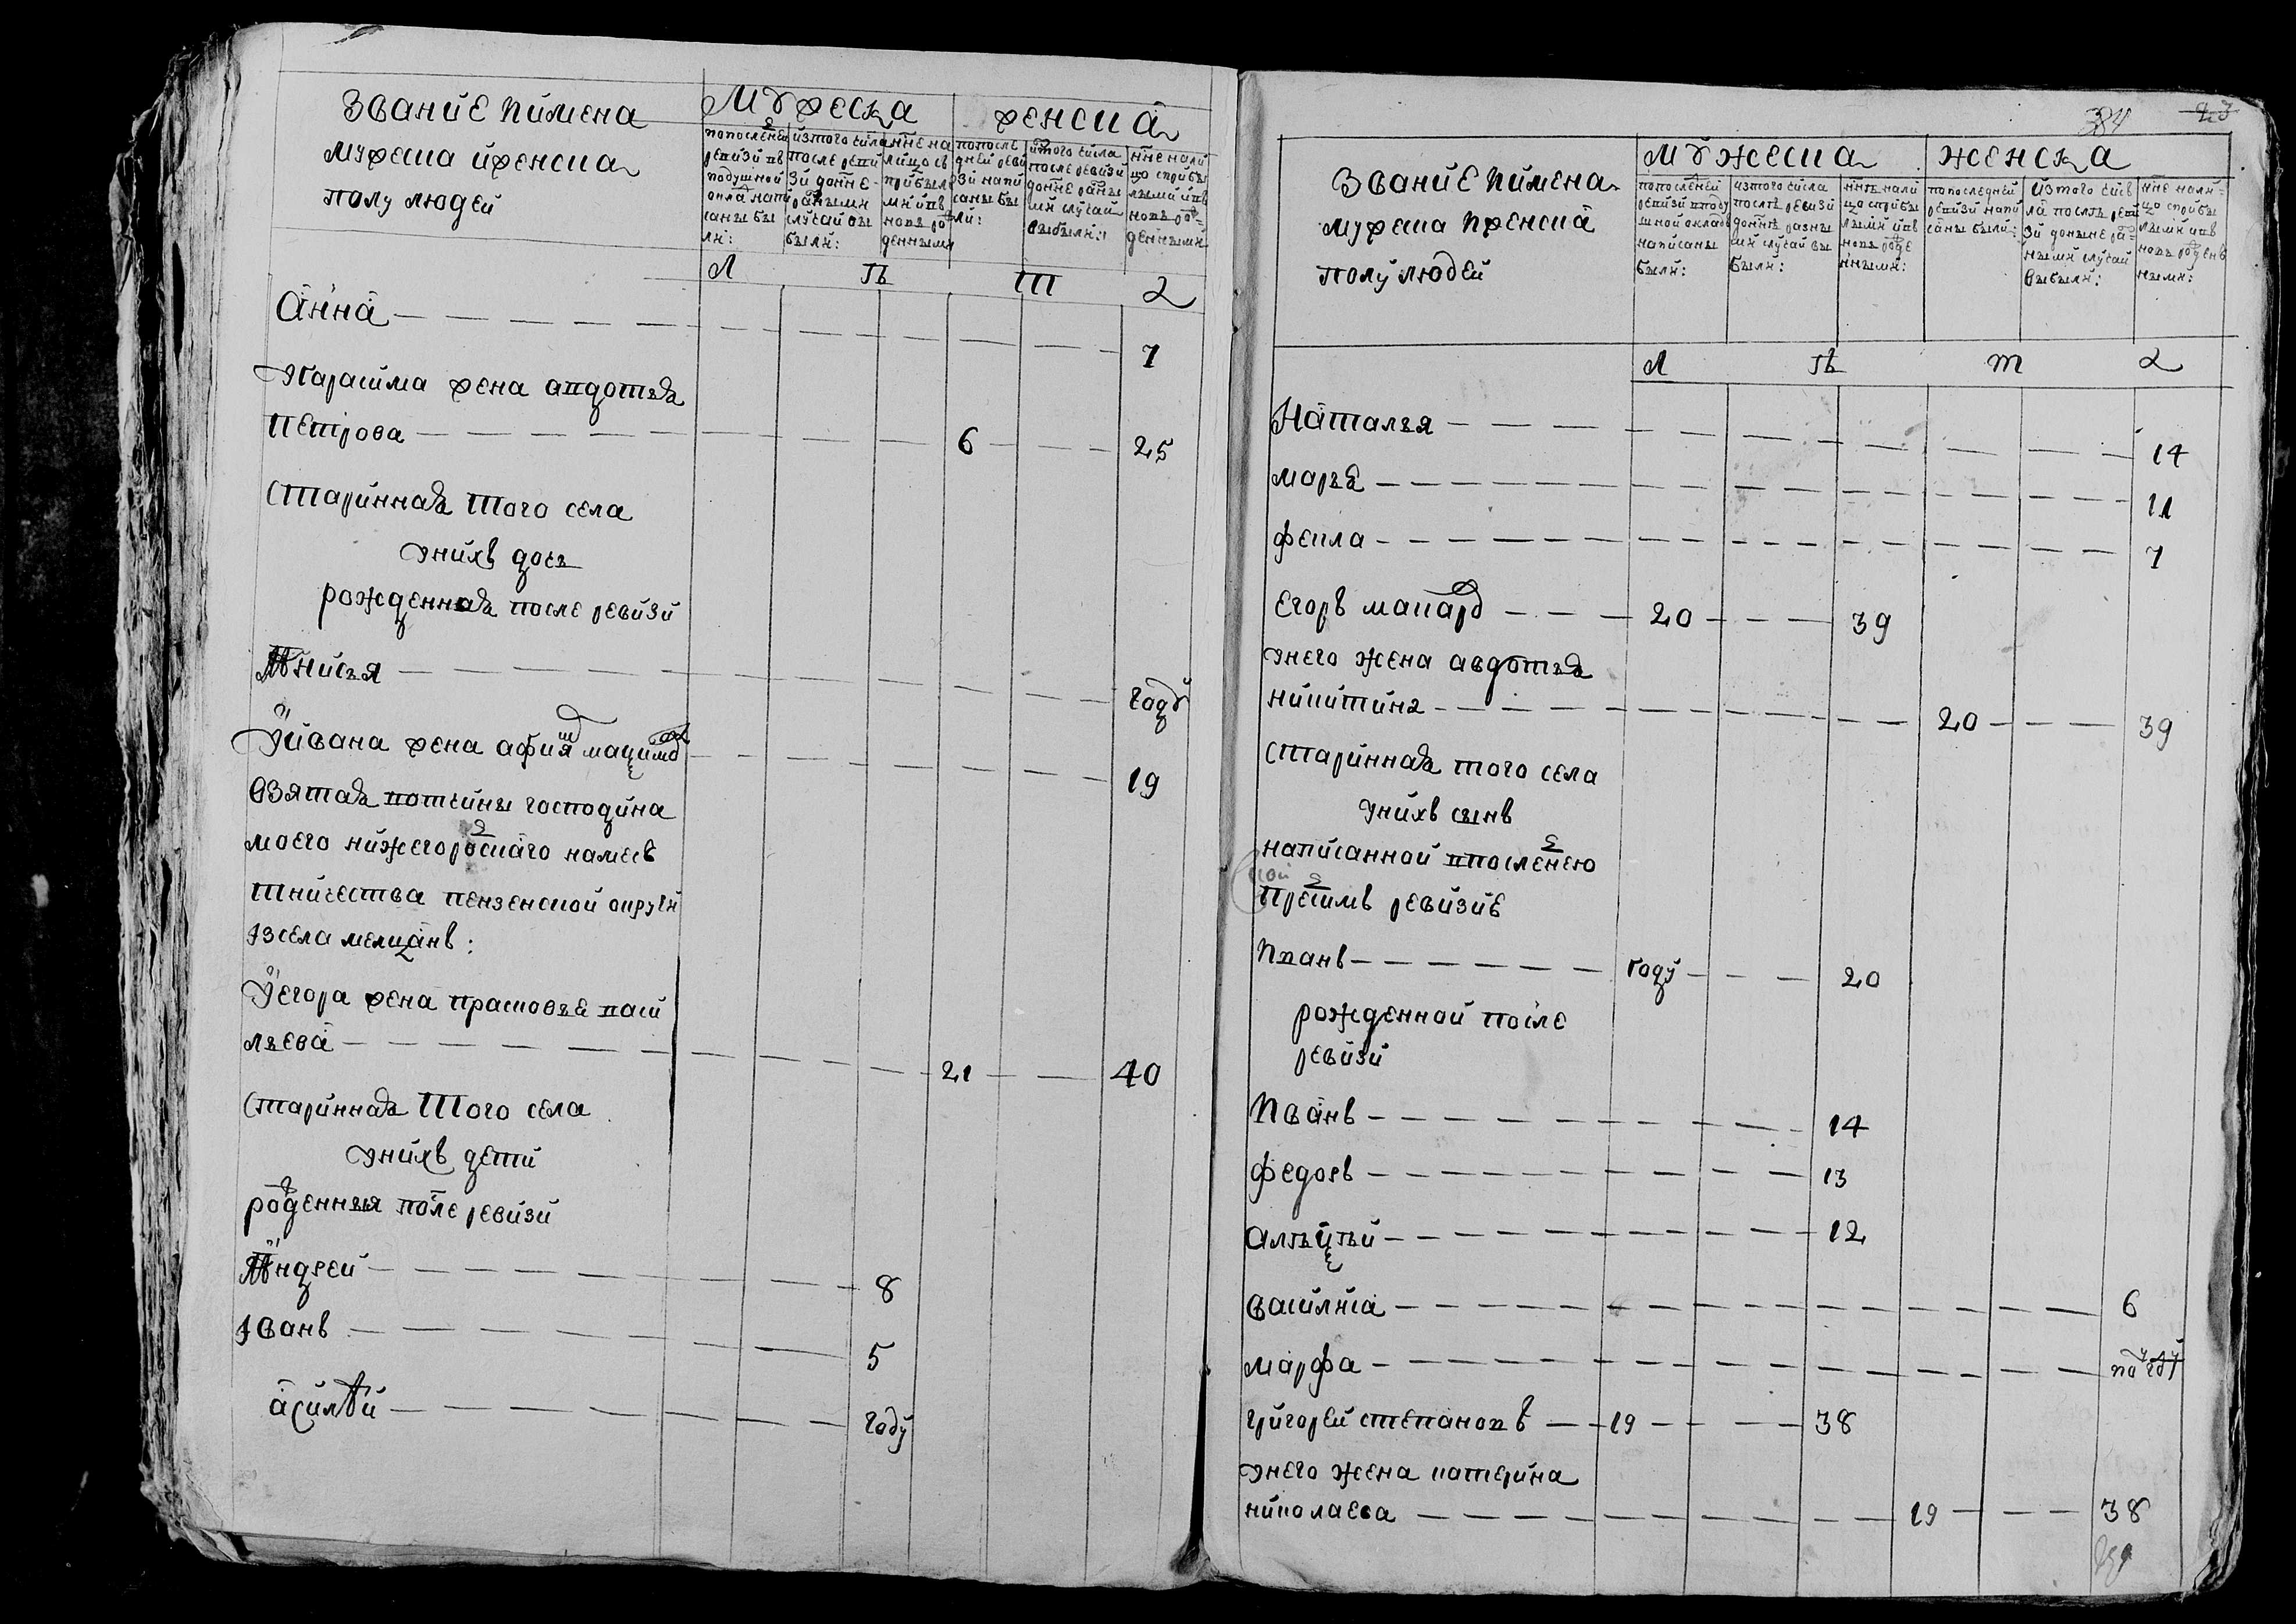 Звание и имена
мужеска и женска
полу людей
Мужеска
женска
по последней ревизии в подушной оклад написаны были:
из того числа после ревизии до ныне разными случаи выбыли:
ныне на лицо с прибылыми и вновь рожденными
по последней ревизии написаны были:
из того числа после ревизии до ныне разными случаи выбыли:
ныне на лицо с прибылыми и вновь рожденными
Л ѣ т а
Анна 7
У Карасима жена авдотья
Петрова 6 25
Старинная того села
у них дочь
рожденная после ревизи
Анисья году
У Ивана жена
19
Взятая вотчины господина
моего нижегороцкаго намес
тничества пензенской округи
Iзсела мелцанъ:
У Егора жена прасковья васи
льева 21 40
Старинная того села
у нихъ дети
рожденныя после ревизи
Андрей 8
Iванъ 5
асилей году
384
43
Звание и имена
мужеска и женска
полу людей
мужеска
женска
по последней ревизии в подушной оклад написаны были:
из того числа после ревизи до ныне разными случаи выбыли:
ныне на лицо с прибылыми и вновь рожденными:
по последней ревизи написаны были:
из того числа после ревизи до ныне разными случаи выбыли:
ныне на лицо с прибылыми и вновь рожденными:
Л ѣ т а
Наталья 14
марья 11
фекла 7
Егоръ макаров 20 39
у него жена авдотья
никитина 20 39
Старинная того села
у нихъ сынъ
написанной в последнею
пред симъ ревизие
Иванъ году 20
рожденной после
ревизи
Иванъ 14
Федоръ 13
алѣксѣй 12
василиса 6
марфа полгоду
григорей степановъ 19 38
у него жена катерина
николаева 19 38